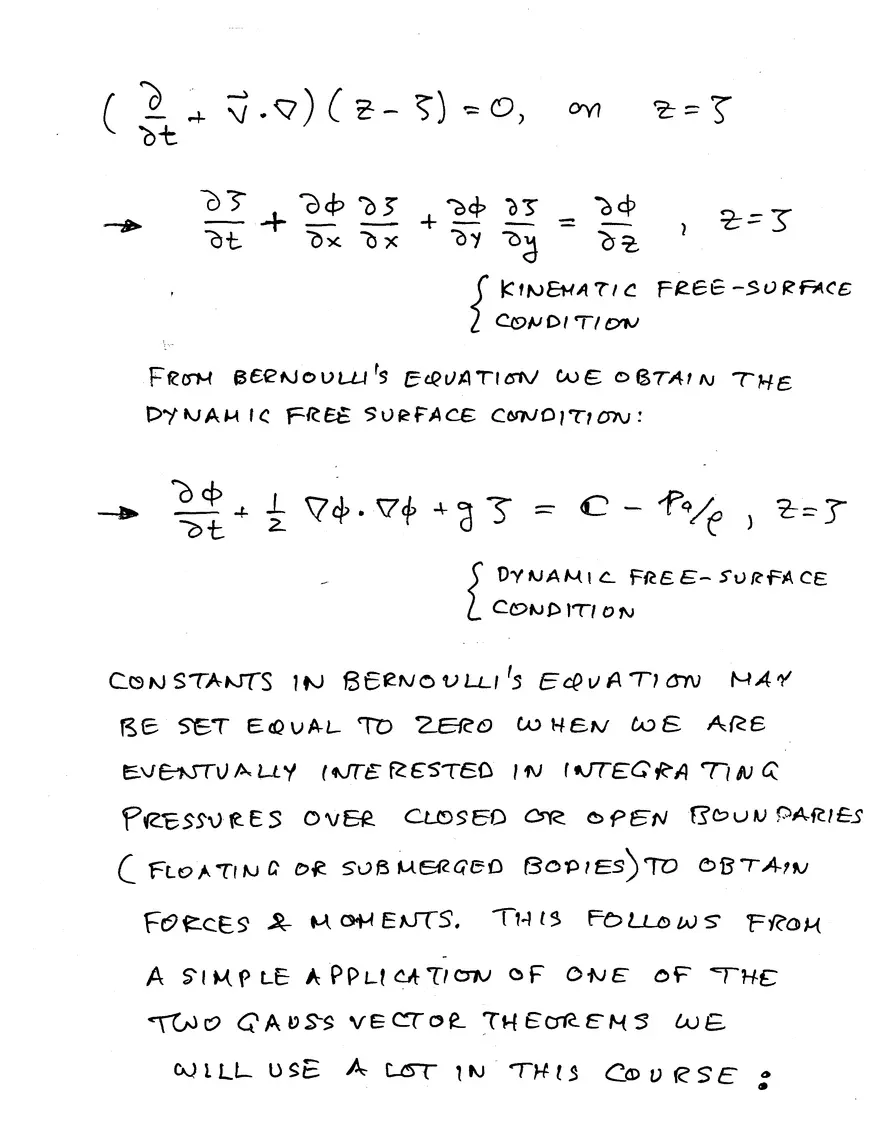 ( ∂/∂t + v⃗ · ∇ ) ( z − ζ ) = 0, on z = ζ
→ ∂ζ/∂t + ∂φ/∂x ∂ζ/∂x + ∂φ/∂y ∂ζ/∂y = ∂φ/∂z , z = ζ
{ KINEMATIC FREE-SURFACE
CONDITION
FROM BERNOULLI'S EQUATION WE OBTAIN THE
DYNAMIC FREE SURFACE CONDITION:
→ ∂φ/∂t + 1/2 ∇φ · ∇φ + g ζ = C − Pa/ρ , z = ζ
{ DYNAMIC FREE-SURFACE
CONDITION
CONSTANTS IN BERNOULLI'S EQUATION MAY
BE SET EQUAL TO ZERO WHEN WE ARE
EVENTUALLY INTERESTED IN INTEGRATING
PRESSURES OVER CLOSED OR OPEN BOUNDARIES
(FLOATING OR SUBMERGED BODIES) TO OBTAIN
FORCES & MOMENTS. THIS FOLLOWS FROM
A SIMPLE APPLICATION OF ONE OF THE
TWO GAUSS VECTOR THEOREMS WE
WILL USE A LOT IN THIS COURSE :